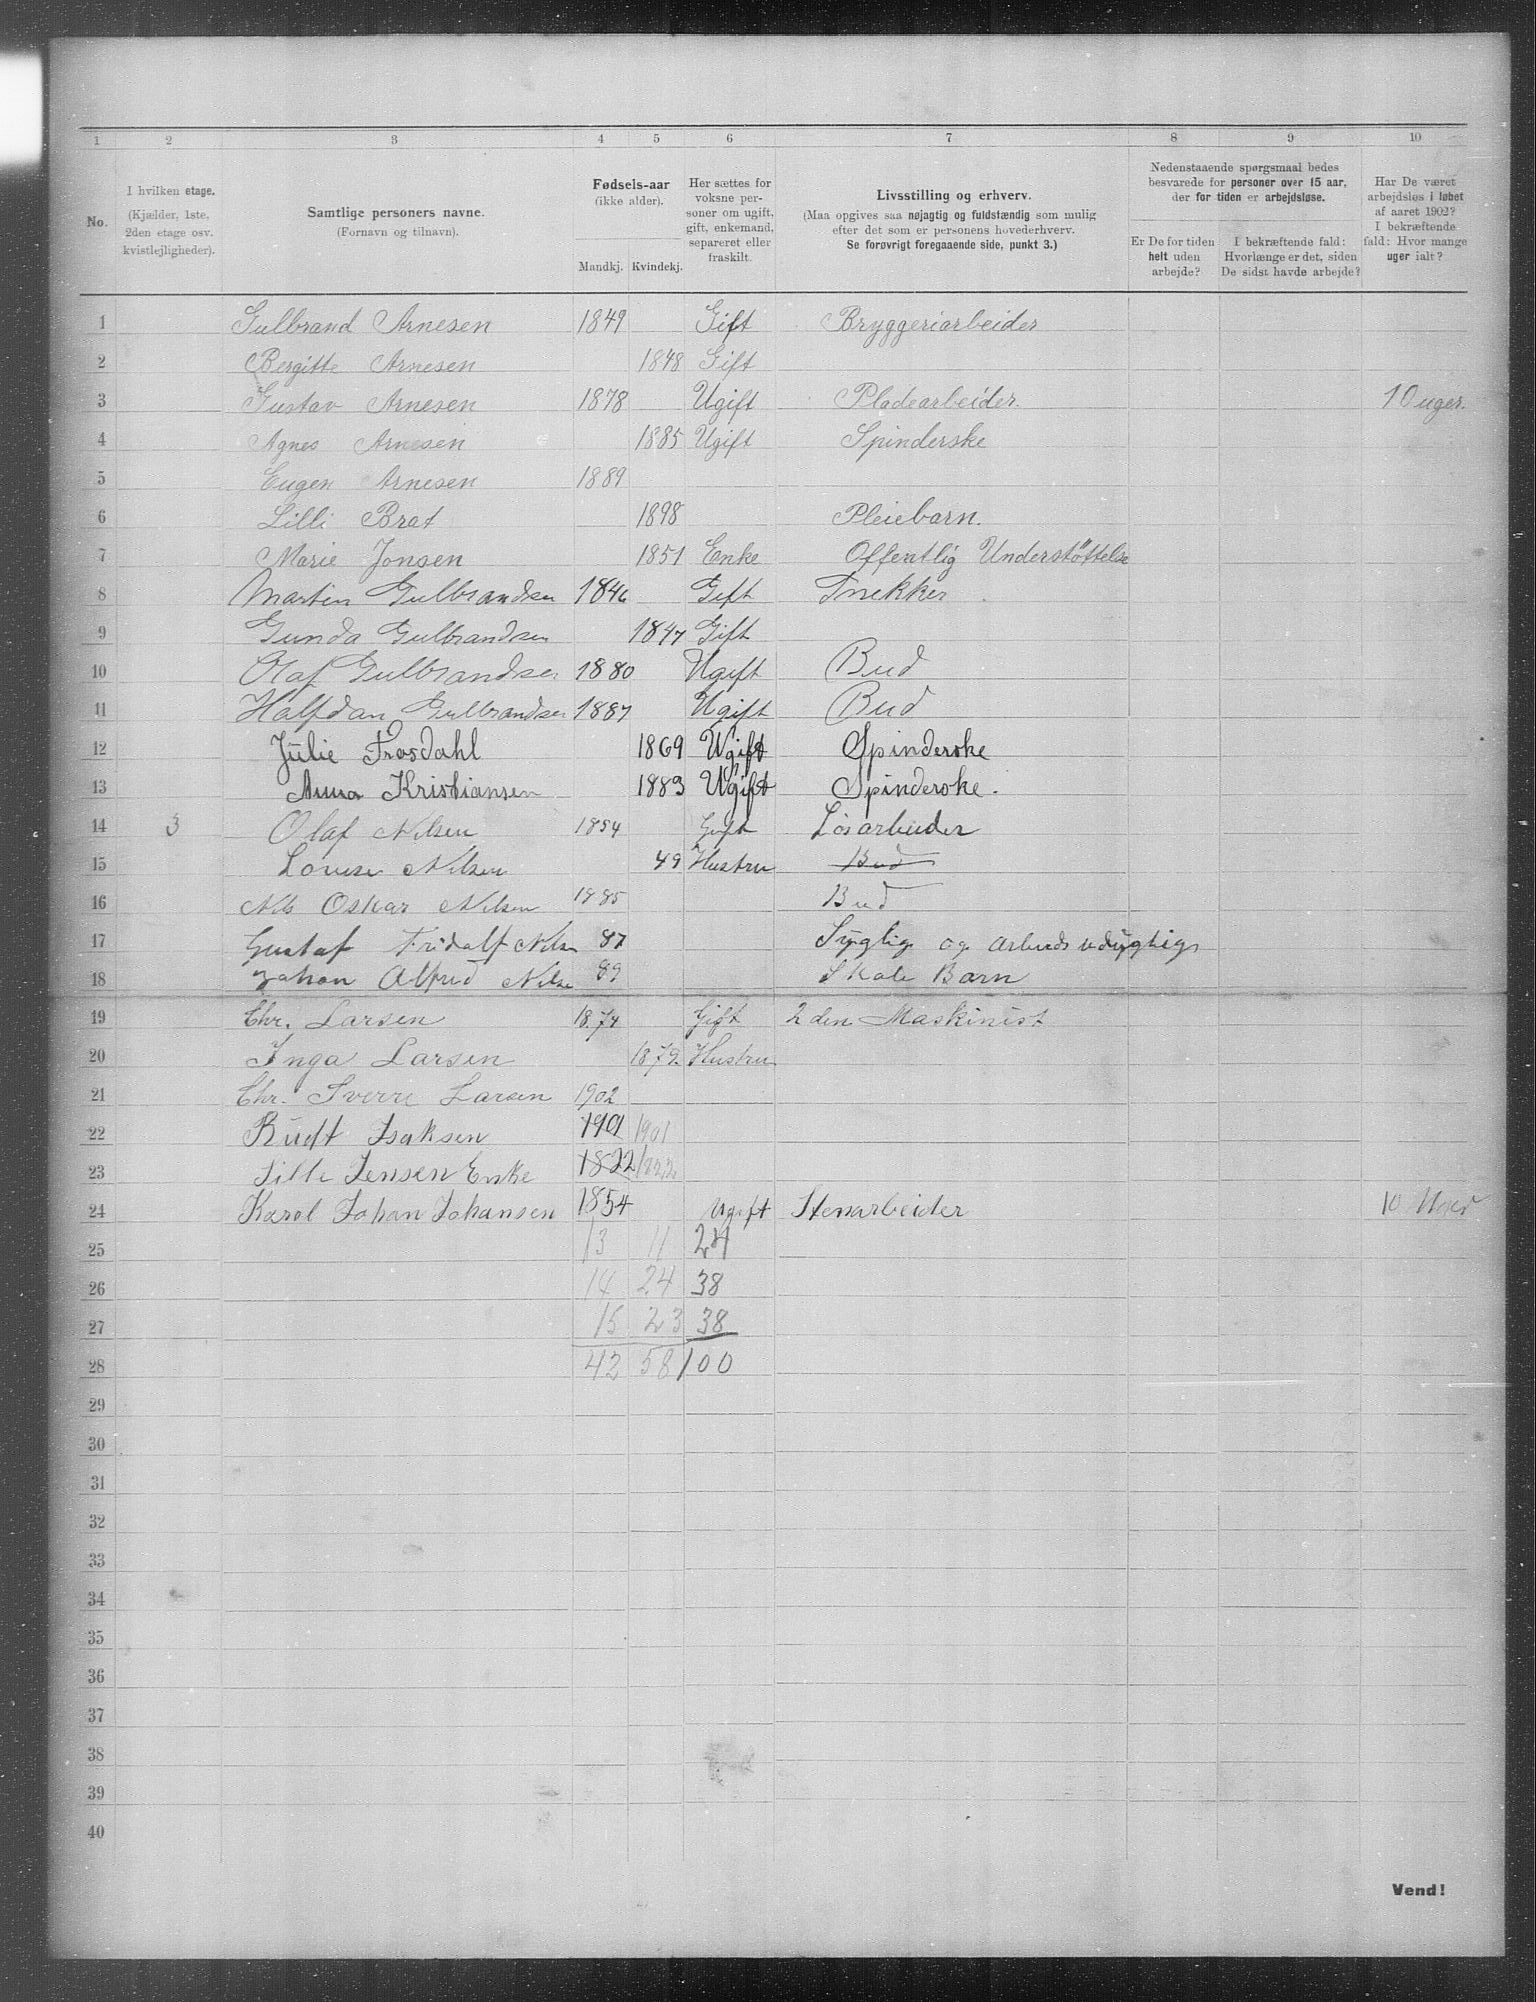 1 2 3 4 5 6 7 8 9 10
No.
I hvilken etage.
(Kjælder, 1ste,
2den etage osv.
kvistlejligheder).
Samtlige personers navne.
(Fornavn og tilnavn).
Fødsels-aar
(ikke alder).
Mandkj. Kvindekj.
Her sættes for
voksne per-
soner om ugift,
gift, enkemand,
separeret eller
fraskilt.
Livsstilling og erhverv.
(Maa opgives saa nøjagtig og fuldstændig som mulig
efter det som er personens hovederhverv.
Se forøvrigt foregaaende side, punkt 3.)
Nedenstaaende spørgsmaal bedes
besvarede for personer over 15 aar,
der for tiden er arbejdsløse.
Er De for tiden
helt uden
arbejde?
I bekræftende fald:
Hvorlænge er det, siden
De sidst havde arbejde?
Har De været
arbejdsløs i løbet
af aaret 1902?
I bekræftende
fald: Hvor mange
uger ialt?
1 Gulbrand Arnesen 1849 Gift Bryggeriarbeider
2 Bergitte Arnesen 1848 Gift
3 Gustav Arnesen 1878 Ugift Pladearbeider. 10 uger.
4 Agnes Arnesen 1885 Ugift Spinderske
5 Eugen Arnesen 1889
6 Lilli Brat 1898 Pleiebarn.
7 Marie Jonsen 1851 Enke Offentlig Understøttelse
8 Martin Gulbrandsen 1846 Gift Snekker
9 Gunda Gulbrandsen 1847 Gift
10 Olaf Gulbrandsen 1880 Ugift Bud
11 Halfdan Gulbrandsen 1887 Ugift Bud
12 Julie Frosdahl 1869 Ugift Spinderske
13 Anna Kristiansen 1883 Ugift Spinderske.
14 3 Olaf Nilsen 1854 Gift Løsarbeider
15 Lovise Nilsen 49 Hustru Bud
16 Nils Oskar Nilsen 1885 Bud
17 Gustaf Fridolf Nilsen 87 Syglig og arbeids udygtig
18 Johan Alfred Nilsen 89 Skole Barn
19 Chr. Larsen 1874 Gift 2den Maskinist
20 Inga Larsen 1879 Hustru
21 Chr. Sverre Larsen 1902
22 Rudt Isaksen 1901 1901
23 Sille Jensen Enke 1822 1822
24 Karol Johan Johansen 1854 Ugift Stenarbeider 10 Uger
25 13 11 24
26 14 24 38
27 15 23 38
28 42 58 100
29
30
31
32
33
34
35
36
37
38
39
40
Vend!